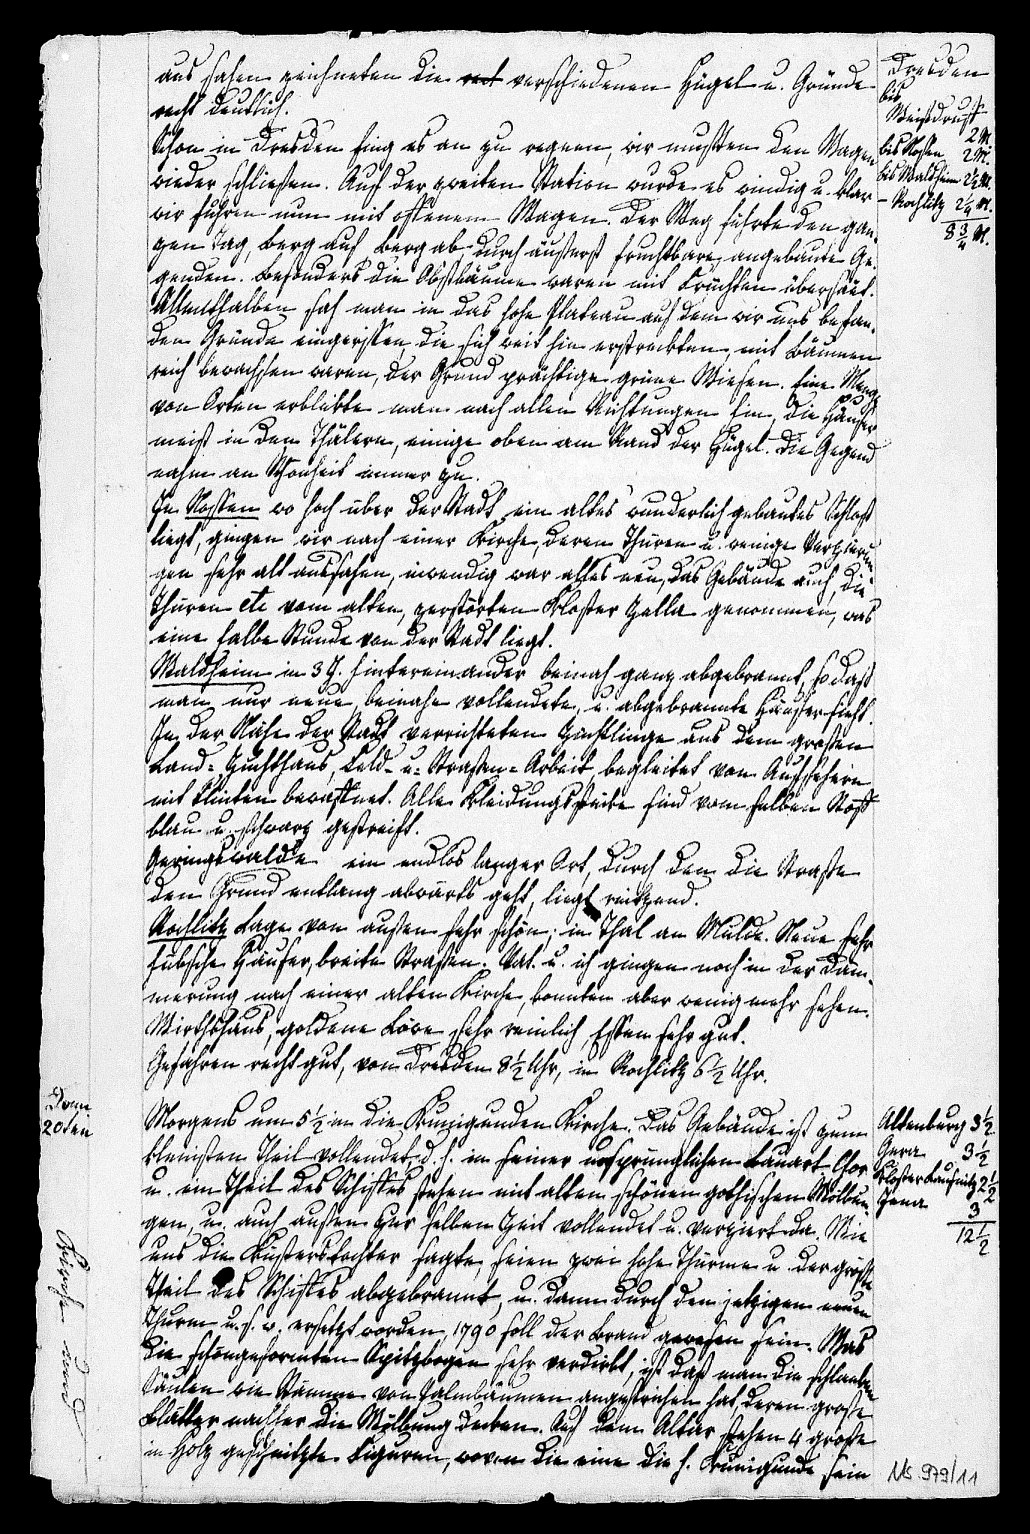 aus sahen zeichneten die verschiedenen Hügel u. Gründe
recht deutlich.
Schon in Dresden fing es an zu regnen, wir mußten den Wagen
wieder schließen. Auf der zweiten Station wurde es windig u. klar
wir fuhren nun mit offenem Wagen. Der Weg führte den gan-
zen Tag, berg auf berg ab durch äußerst fruchtbare, angebaute Ge-
genden. Besonders die Obstbäume waren mit Früchten übersäet.
Allenthalben sah man in das hohe Plateau auf dem wir uns befan-
den Gründe eingerissen, die sich weit hin erstreckten, mit Bäumen
reich bewachsen waren, der Grund prächtige grüne Wiesen. Eine Menge
von Orten erblikte man nach allen Richtungen hin, die Häuser
meist in den Thälern, einige oben am Rand der Hügel. Die Gegend
nahm an Schönheit immer zu.
In Nossen wo hoch über der Stadt ein altes wunderlich gebautes Schloß
liegt, gingen wir nach einer Kirche, deren Thüren u. wenige Verzierun-
gen sehr alt aussahen, inwendig war alles neu, das Gebäude auch, die
Thüren etc vom alten, zerstörten Kloster Zella genommen, was
eine halbe Stunde von der Stadt liegt.
Waldheim in 3 J. hintereinander beinah ganz abgebrannt, so daß
man nur neue, beinahe vollendete, u. abgebrannte Häuser sieht.
In der Nähe der Stadt verrichteten Züchtlinge aus dem großen
Land-Zuchthaus, Feld- u. Straßen-Arbeit, begleitet von Aufsehern
mit Flinten bewaffnet. Alle Kleidungsstücke sind vom selben Stoff
blau u. schwarz gestreift.
Geringswalde ein endlos langer Ort, durch den die Straße
den Grund entlang abwärts geht, liegt reitzend.
Rochlitz Lage von außen sehr schön; im Thal an Mulde. Neue sehr
hübsche Häuser, breite Straßen. Vat. u. ich gingen noch in der Däm-
merung nach einer alten Kirche, konnten aber wenig mehr sehen.
Wirthshaus, goldene Löwe sehr reinlich, Essen sehr gut.
Gefahren recht gut, von Dresden 8½ Uhr, in Rochlitz 6½ Uhr.
Morgens um 5½ in die Kunigunden Kirche. Das Gebäude ist zum
kleinsten Theil vollendet d. h. in seiner ursprünglichen Bauart. Chor
u. ein Theil des Schiffes stehen mit alten schönen gothischen Wölbun-
gen, u. auch außen zur selben Zeit vollendet u. verziert da. Wie
uns die Küsterstochter sagte, seien zwei hohe Thürme u. der größte
Theil des Schiffes abgebrannt, u. dann durch den jetzigen neuen
Thurm u. s. w. ersetzt worden, 1790 soll der Brand gewesen sein. Was
die schöngeformten Spitzbogen sehr verdirbt, ist daß man die schlanken
Säulen wie Stämme von Palmbäumen angestrichen hat, deren große
Blätter nachher die Wölbung decken. Auf dem Altar stehen 4 große
in Holz geschnitzte Figuren, wovon die eine die h. Kunigunde sein
Dresden
bis
Weisdruff
2 M.
bis Nossen 2 M.
bis Waldheim 2½ M.
– Rochlitz 2¼ M.
8¾ M.
20ten
Altenburg 3½
Gera 3½
Klosterlausnitz 2½
Jena 3
12½
Ns. 979/11